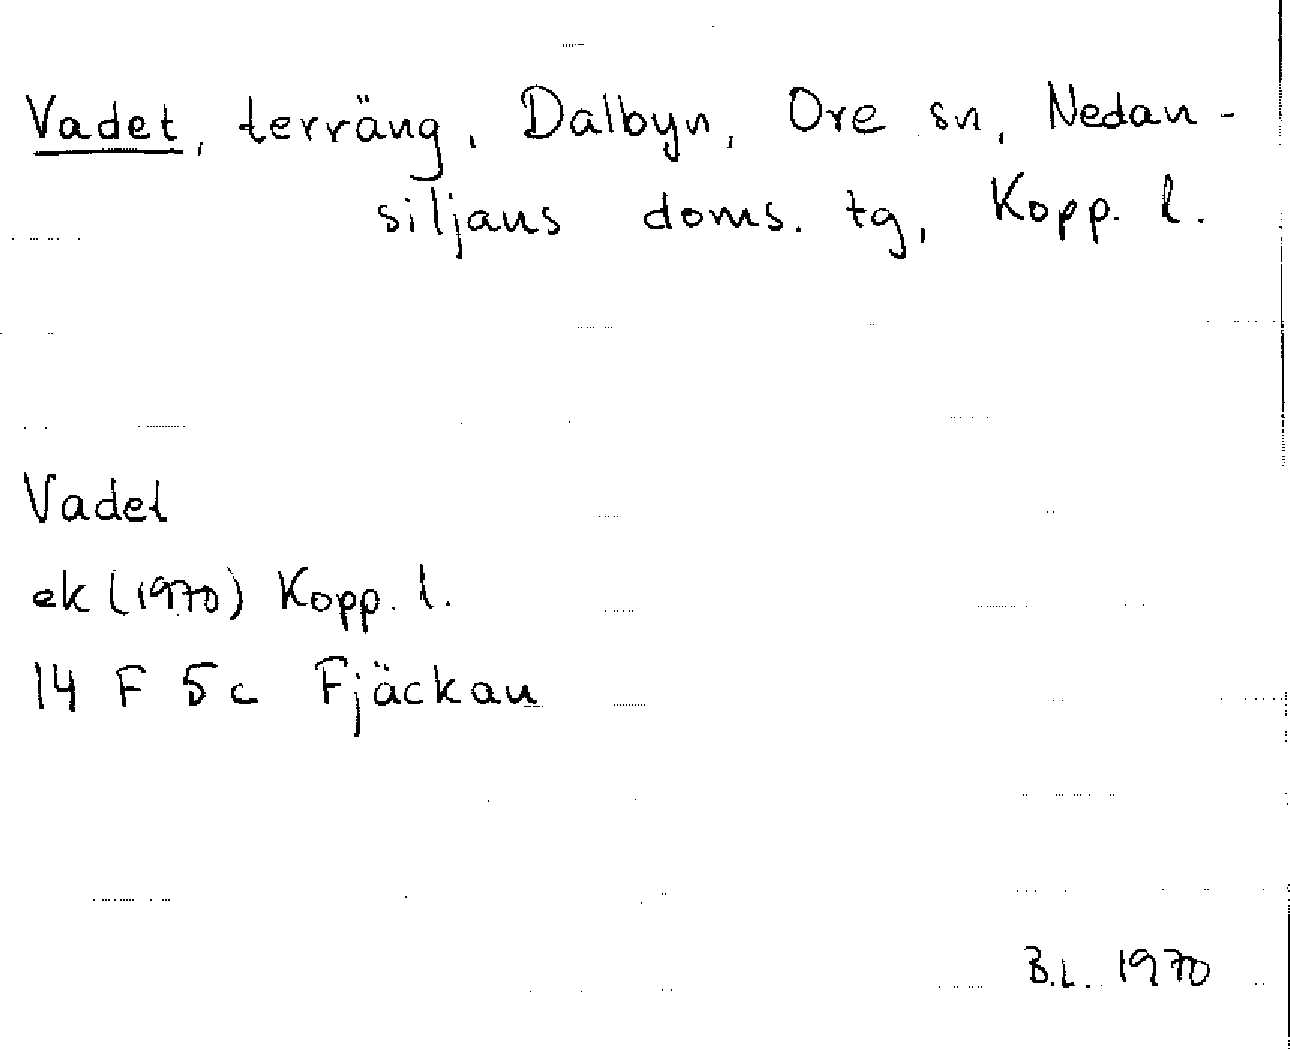 Vadet, terräng, Dalbyn, Ore sn, Nedan-
siljans doms. tg, Kopp. l.
Vadet
ek (1970) Kopp. l.
14 F 5c Fjäckan
B.L. 1970